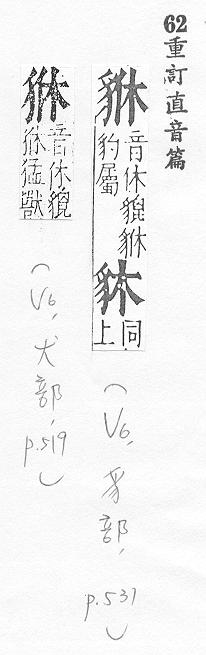 62重訂直音篇
貅
音休貔貅
豹屬
同上
(V6, 豸部, p.531)
音休貔
猛獸
(V6, 犬部, p.519)